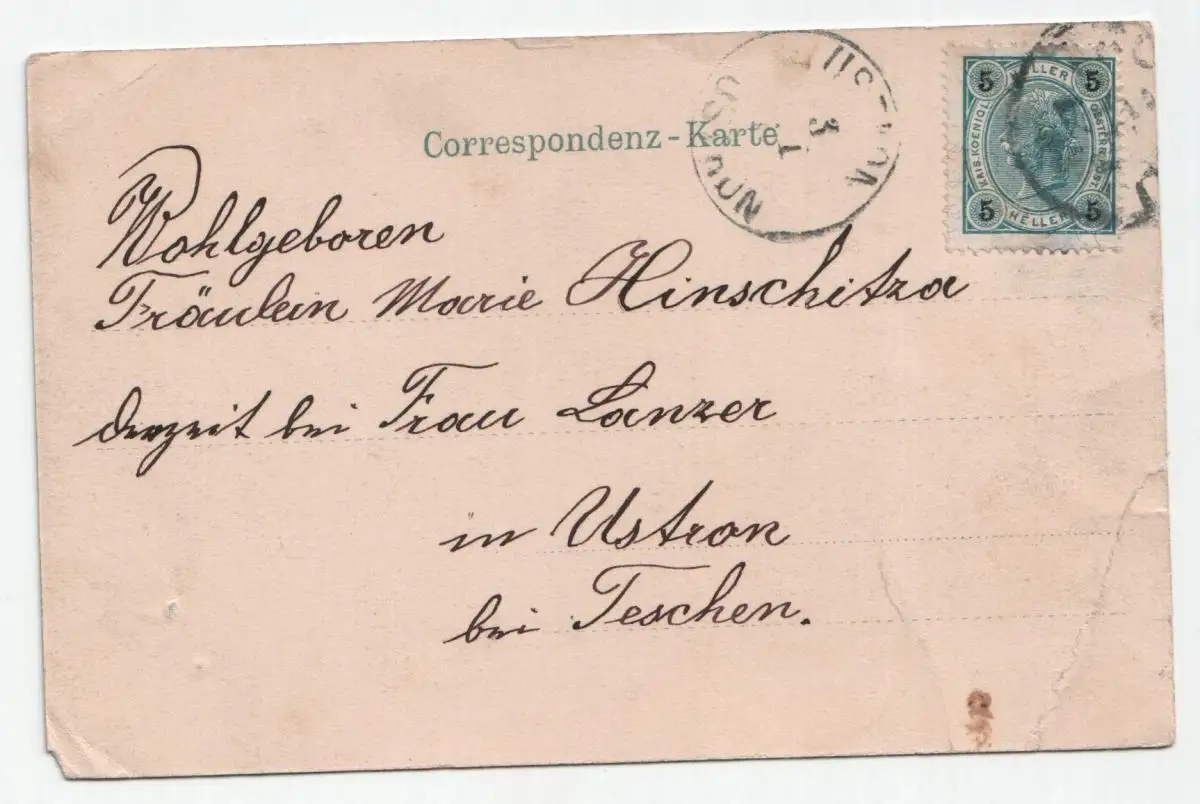 Correspondenz-Karte
5 HELLER 5
KAIS. KOENIGL. OESTERR. POST.
5 HELLER 5
3
1
Wohlgeboren
Fräulein Marie Hinschitza
derzeit bei Frau Lanzer
in Ustron
bei Teschen.